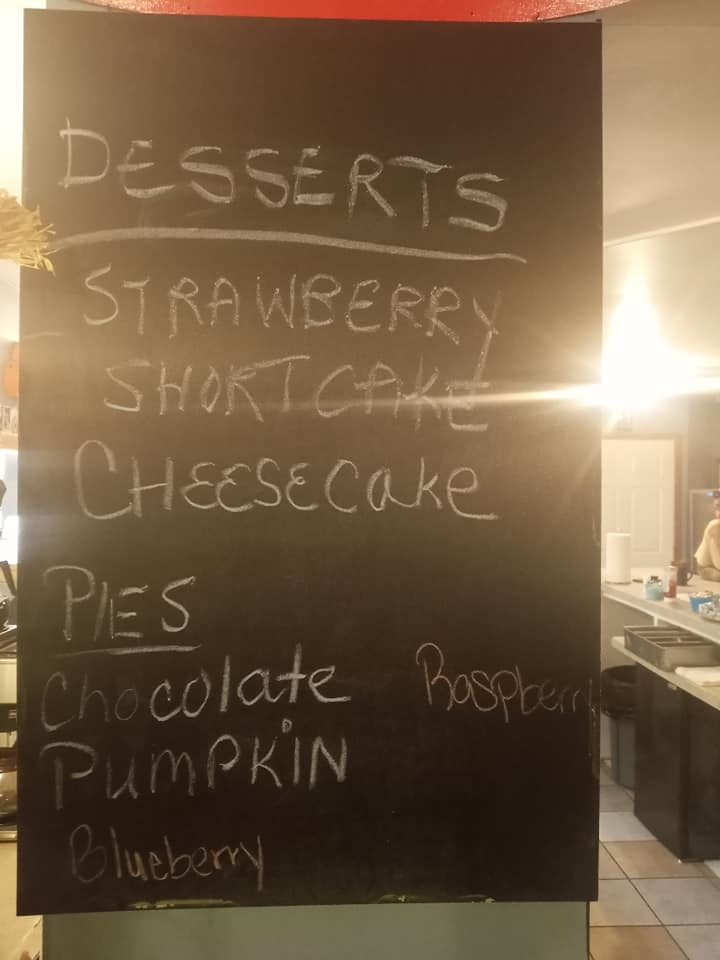 DESSERTS
STRAWBERRY
SHORTCAKE
CHEESECake
PIES
Chocolate Raspberry
PUMPKiN
Blueberry